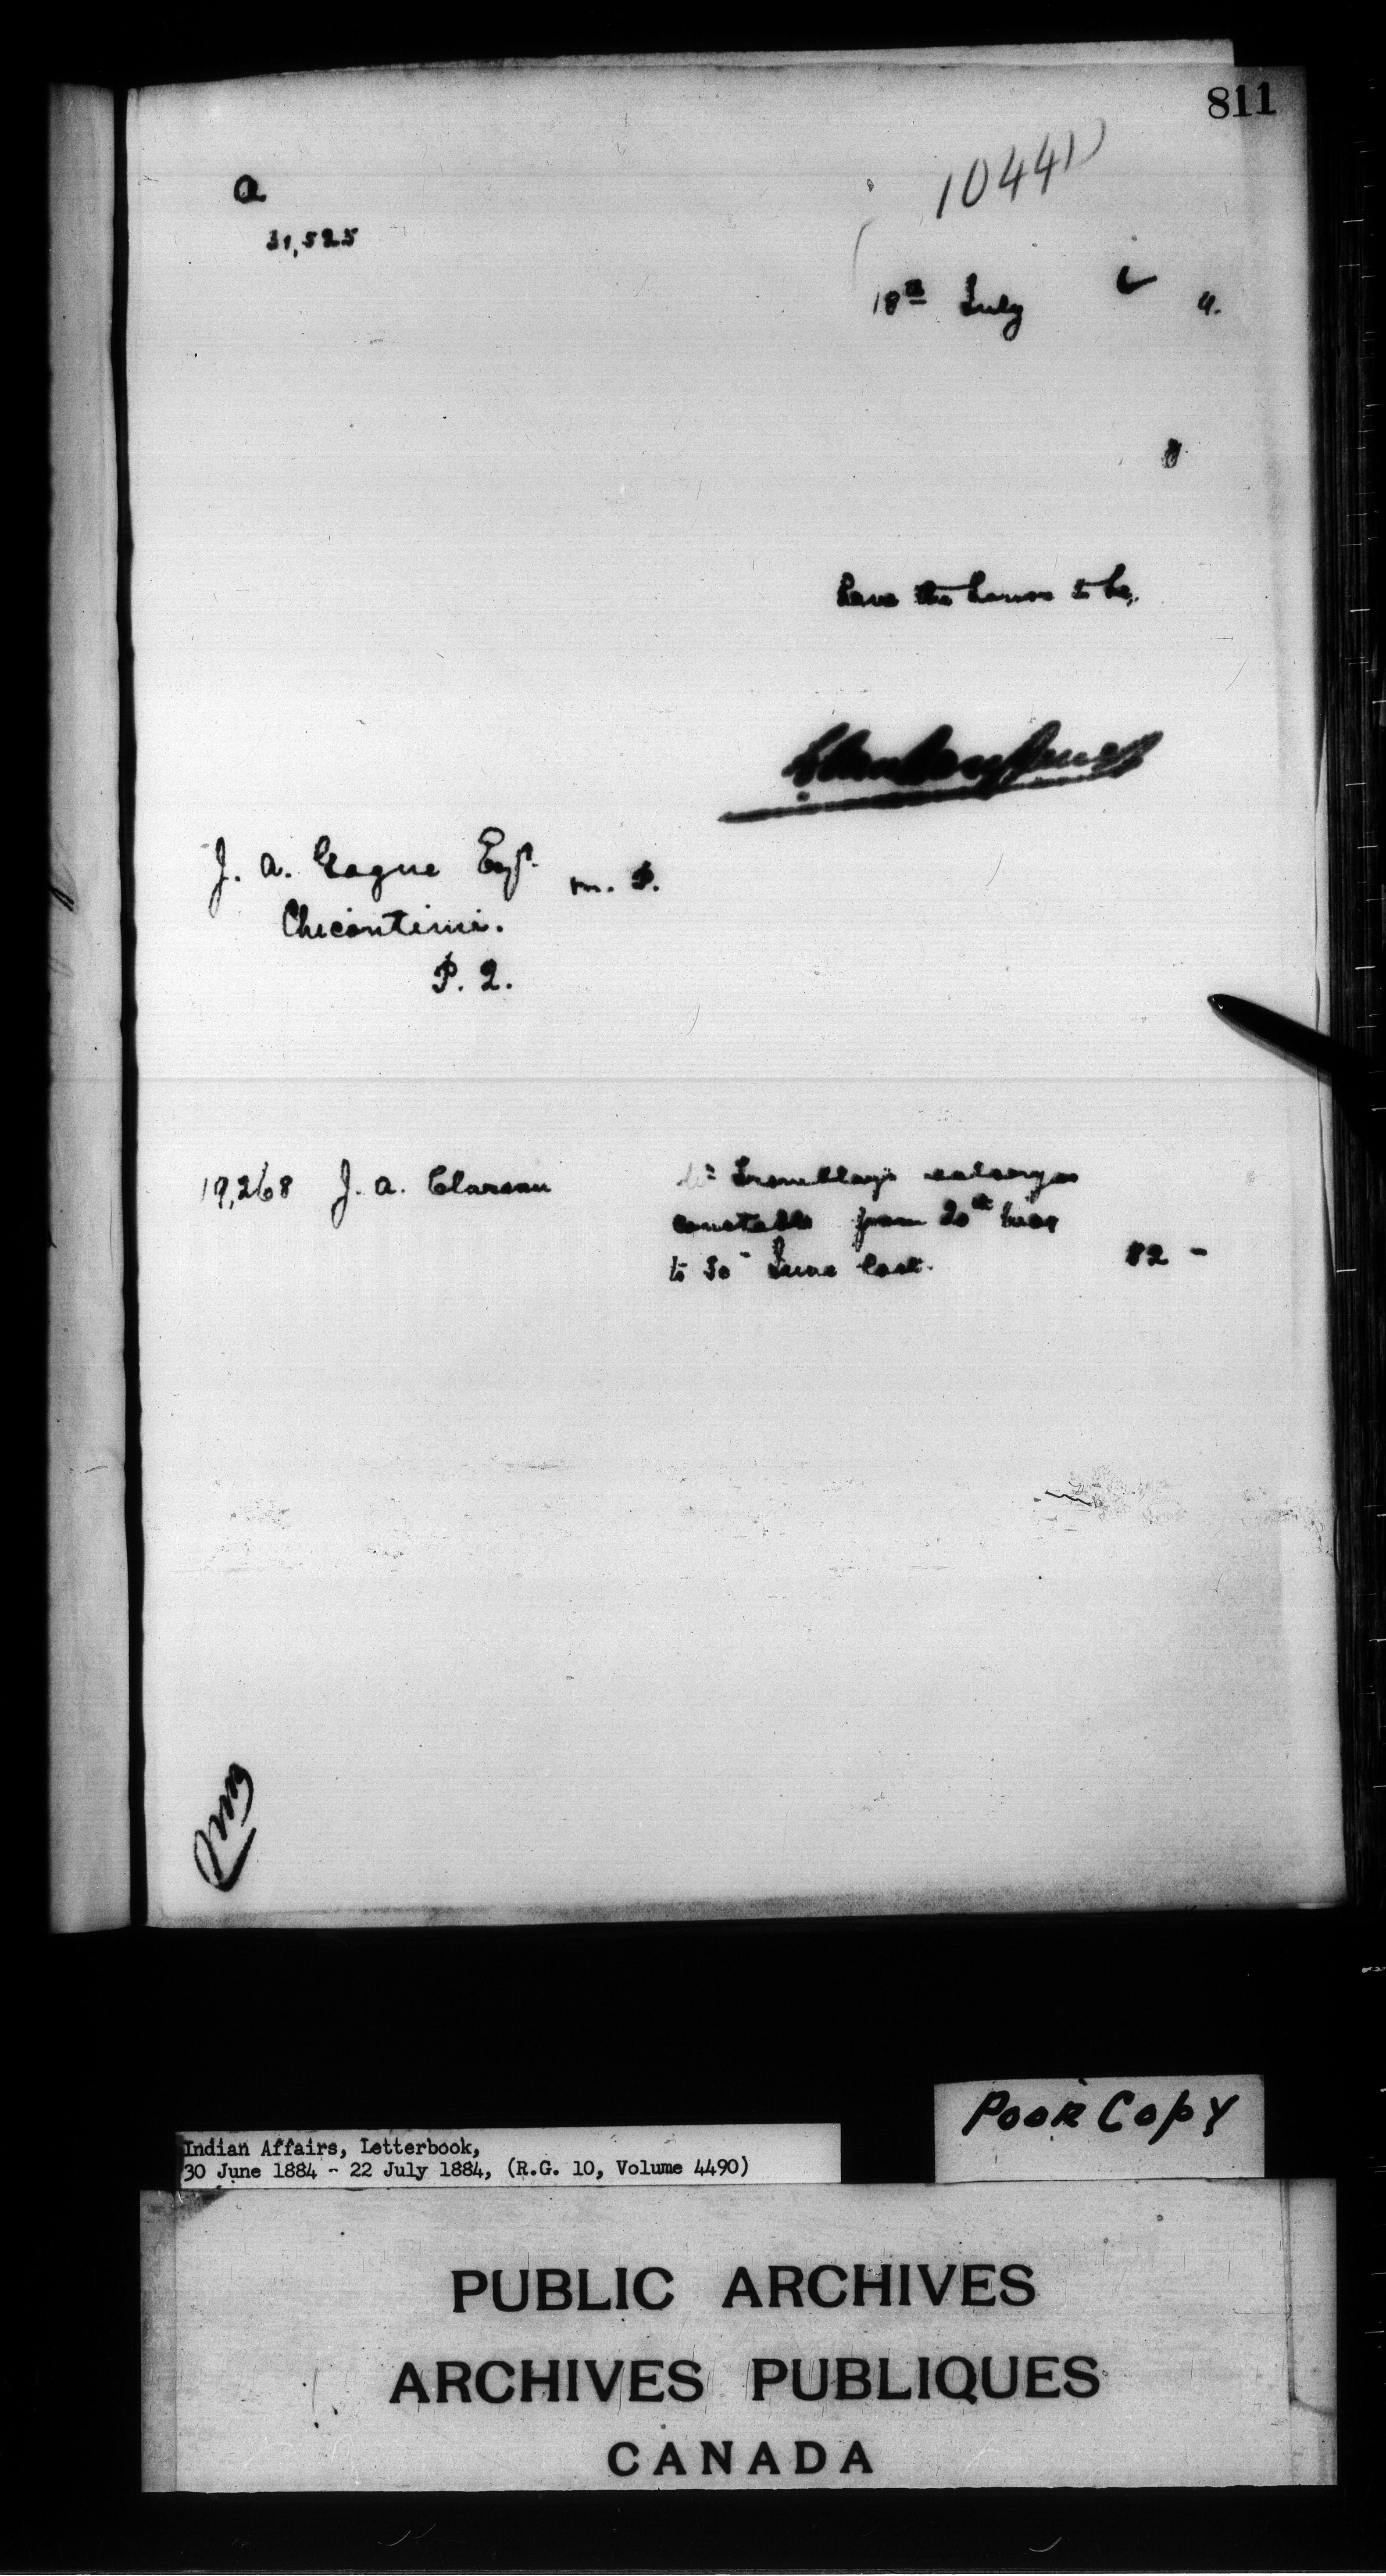 811
1044
a
31,525
18th July 4.
have the honor to be,
J. A. Gagné Esqr. M. P.
Chicoutimi.
P. Q.
19,268 J. A. Clareau Mr Tremblay's salary as
constable from 20th
to 30 June last. 82 -
Poor Copy
Indian Affairs, Letterbook,
30 June 1884 - 22 July 1884, (R.G. 10, Volume 4490)
PUBLIC ARCHIVES
ARCHIVES PUBLIQUES
CANADA